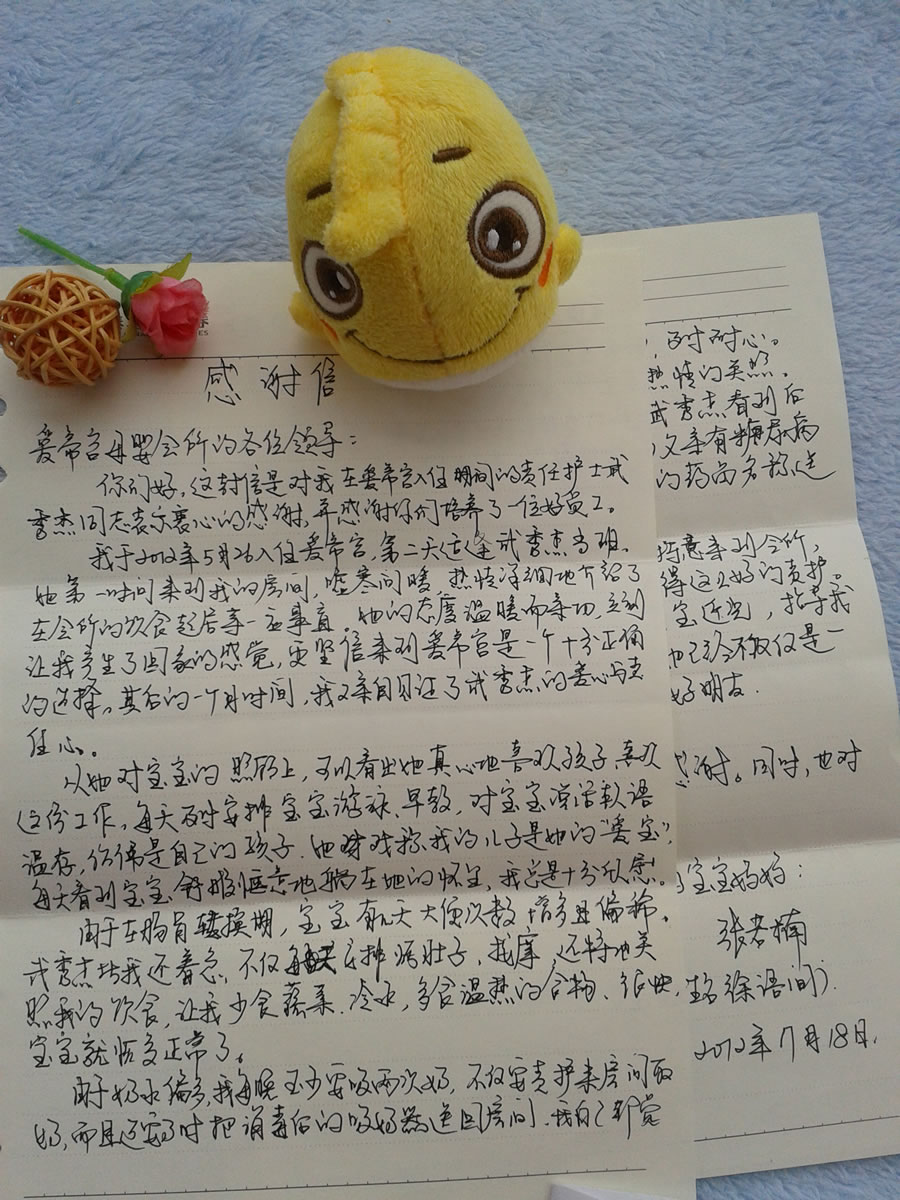 感谢信
爱帝宫母婴会所的各位领导：
你们好，这封信是对我在爱帝宫入住期间的责任护士武
秀杰同志表示衷心的感谢，并感谢你们培养了一位好员工。
我于2012年5月26入住爱帝宫，第二天适逢武秀杰当班。
她第一时间来到我的房间，嘘寒问暖，热情详细地介绍了
在会所的饮食起居等一应事宜。她的态度温暖而亲切，立刻
让我产生了回家的感觉，更坚信来到爱帝宫是一个十分正确
的选择。其后的一个月时间，我又亲自见证了武秀杰的爱心与责
任心。
从她对宝宝的照顾上，可以看出她真心地喜欢孩子，喜欢
这份工作，每天及时安排宝宝游泳、早教，对宝宝说话软语
温存，仿佛是自己的孩子。她常戏称我的儿子是她的“爱宝”，
每天看到宝宝舒服惬意地躺在她的怀里，我总是十分欣慰。
由于在肠胃转换期，宝宝有几天大便次数增多且偏稀。
武秀杰比我还着急，不仅每天安排焐肚子、按摩，还特地关
照我的饮食，让我少食蔬菜、冷水，多食温热的食物、很快，
宝宝就恢复正常了。
由于奶水偏多，我每晚至少要吸两次奶，不仅要责护来房间取
奶，而且还要及时把消毒后的吸奶器送回房间。我自己都觉
，及时耐心。
热情的关照。
武秀杰看到后
又亲有糖尿病
的药品名称送
特意来到会所，
得这么好的责护。
宝近况，指导我
她已经不仅仅是一
好朋友．
感谢。同时，也对
宝宝妈妈：
张君楠
徐语间）．
2012年7月18日．